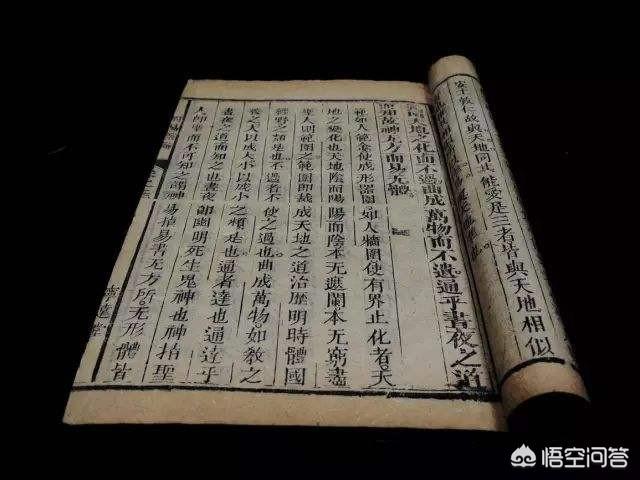 安土敦仁故與天地同 能愛是三者皆與天地相似
範圍天地之化而不過曲成萬物而不遺通乎晝夜之道
而知故神无方而易无體
範如人範金使成形器圍如人牆圍使有界止化者天
地之變化也天地陰而陽陽而陰本无遮闌本无窮盡
聖人則範圍卽裁成天地之道治歷明時體國
經野之類是也不過者不使之過也曲成萬物如教之
養之大以成大小以成小之類是也通者達也通達乎
晝夜之道而知之也晝夜卽幽明死生鬼神也神指聖
人卽聖而不可知之謂神易指易書无方所无形體皆
悟空问答